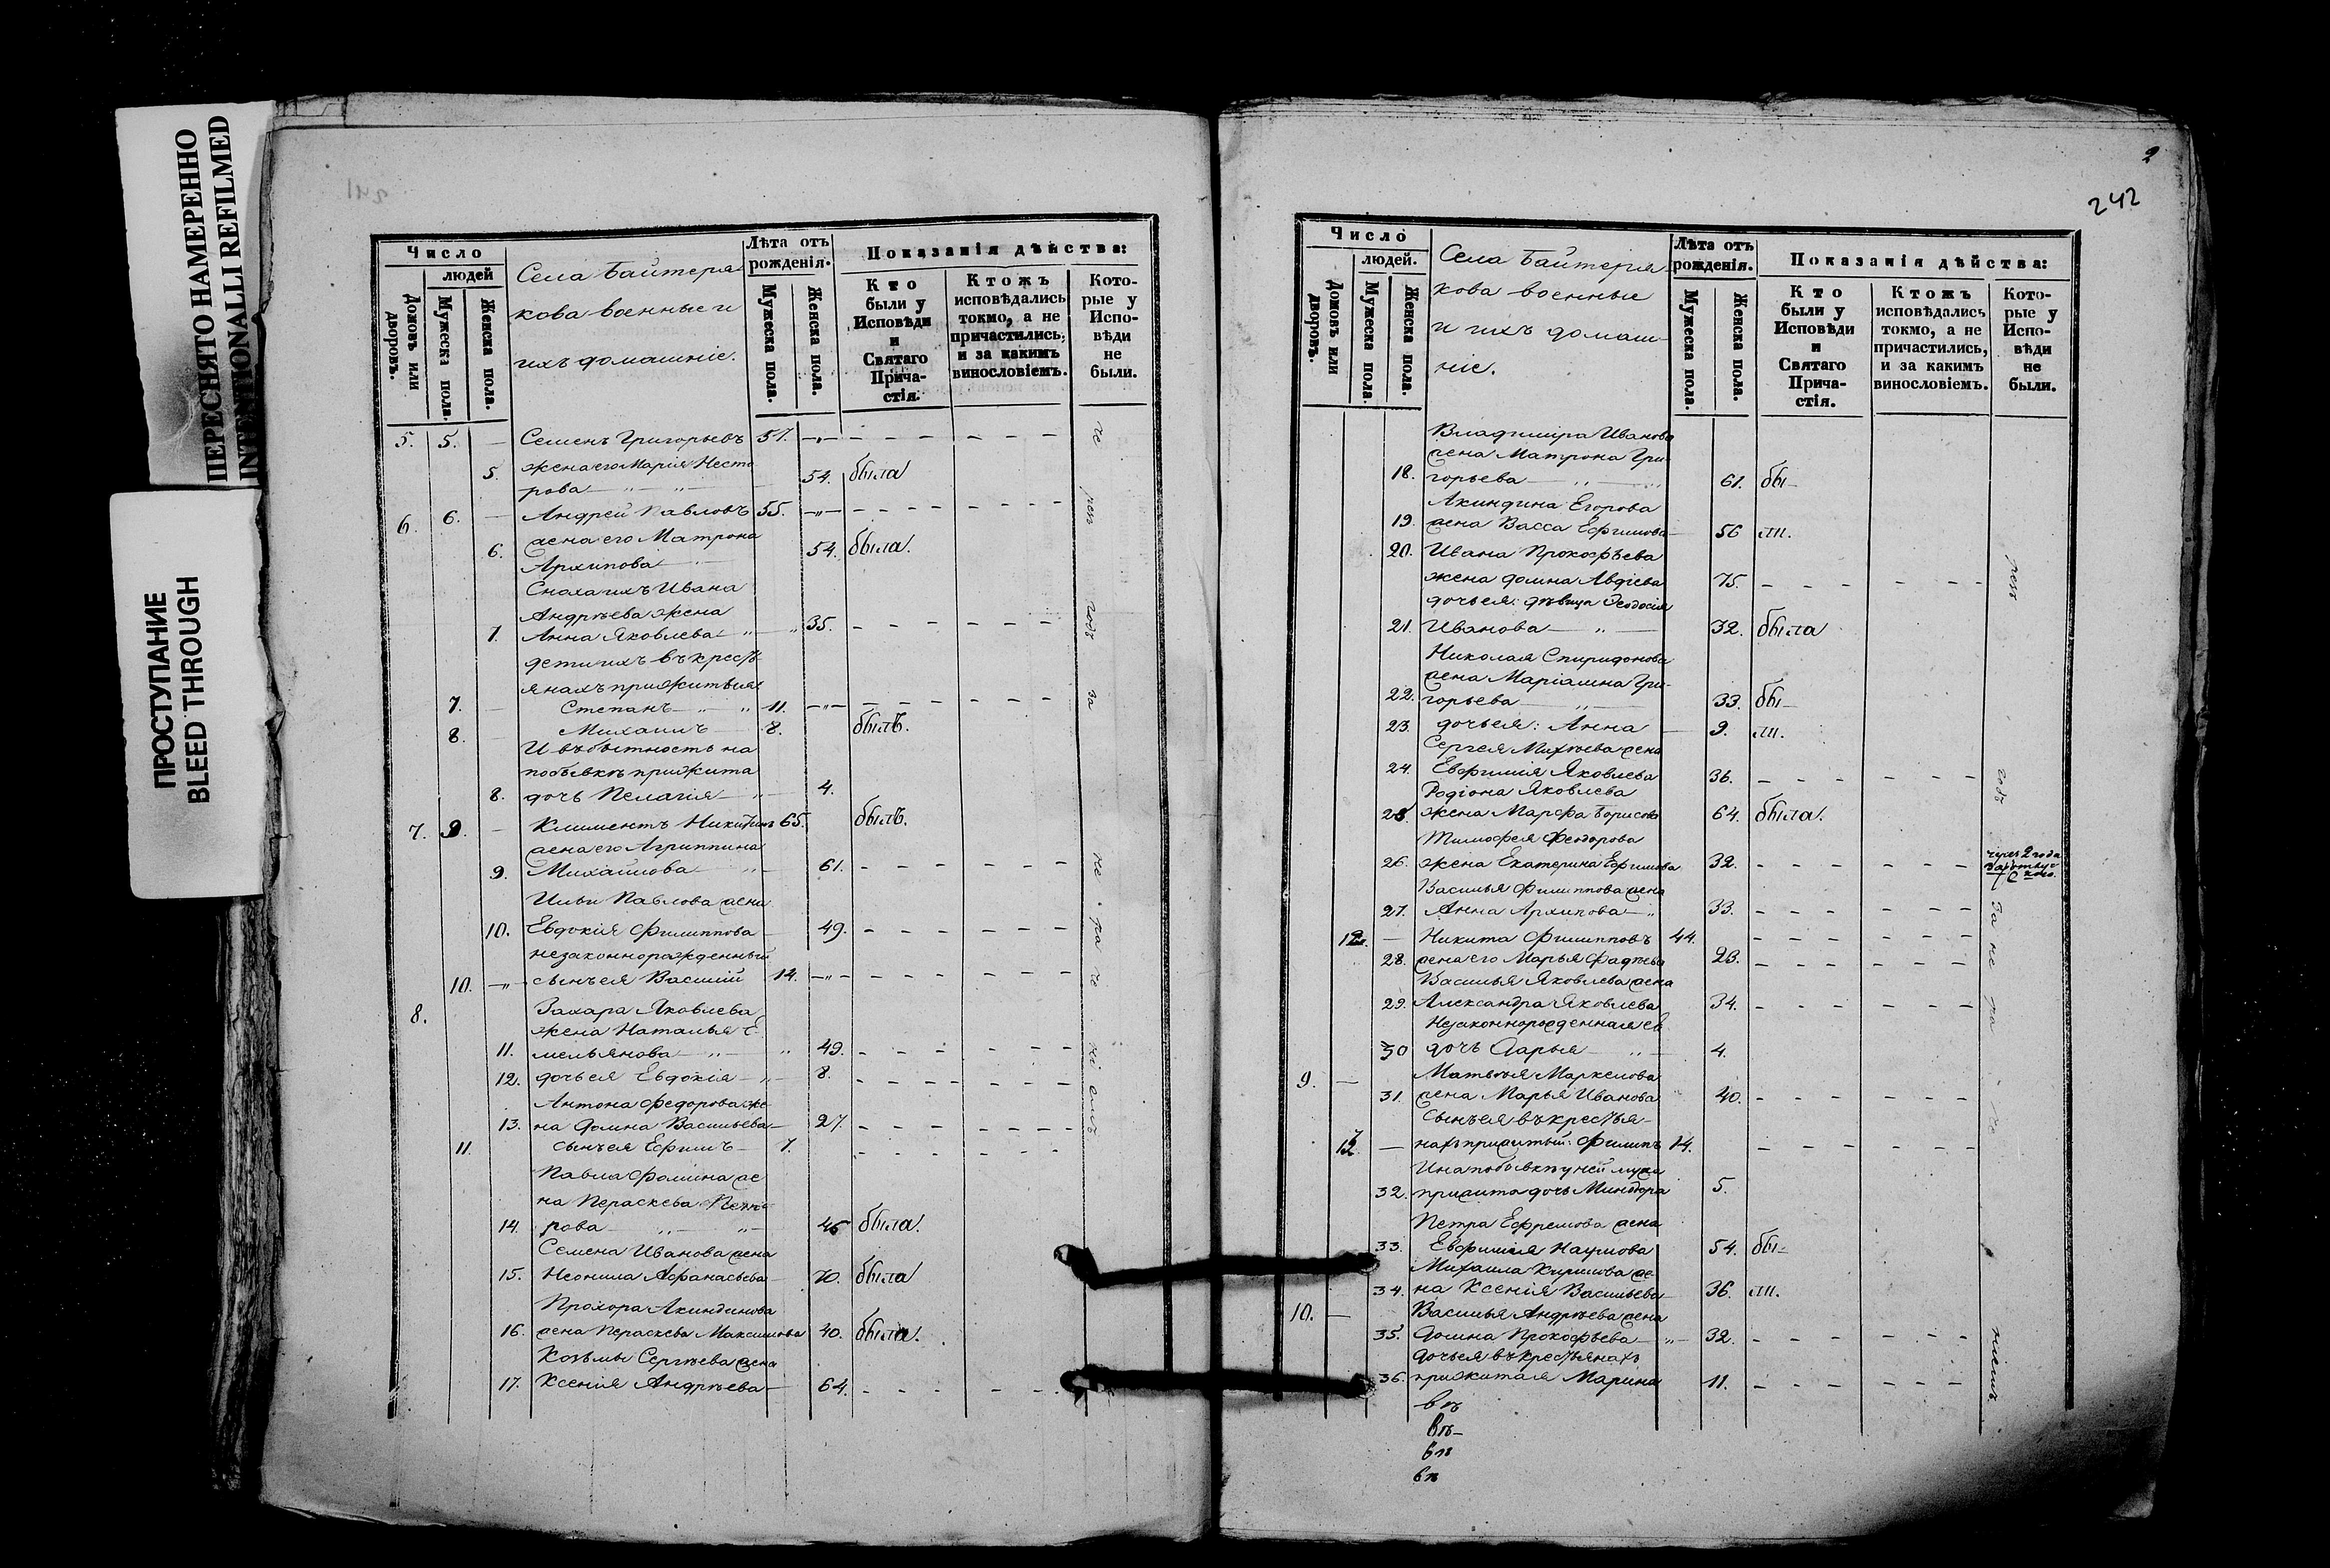 ПЕРЕСНЯТО НАМЕРЕННО
INTENTIONALLI REFILMED
ПРОСТУПАНИЕ
BLEED THROUGH
241
Число
людей
Домовъ или дворовъ.
Мужеска пола.
Женска пола.
Села Байтеря-
кова военные и
ихъ домашніе.
Лѣта отъ
рожденія.
Мужеска пола.
Женска пола.
Показанія дѣйства:
Кто
были у
Исповѣди
и
Святаго
Прича-
стія.
Ктожъ
исповѣдались
токмо, а не
причастились,
и за какимъ
винословіемъ.
Кото-
рые у
Испо-
вѣди
не
были.
5. 5. — Семенъ Григорьевъ 57.
жена его Марія Несто
5. рова 54. была
6. 6. — Андрей Павловъ 55.
жена его Матрона
6. Архипова 54. была.
Сноха ихъ Ивана
Андрѣева жена
7. Анна Яковлева 35.
дети ихъ въ кресть
янахъ прижитыя
7. — Степанъ 11.
8. Михаилъ 8. былъ.
И въ бытность на
побывкѣ прижита
8. дочь Пелагія 4.
7. 9. — Климентъ Никитинъ 65. былъ.
жена его Агриппина
9. Михайлова 61.
Ильи Павлова жена
10. Евдокія Филиппова 49.
незаконнорожденный
10. сынъ ея Василій 14.
8. Захара Яковлева
жена Наталья Е
11. мельянова 49.
12. дочь ея Евдокія 8.
Антона Федорова же
13. на Домна Васильева 27.
11. сынъ ея Ефимъ 7.
Павла Фомина же
на Пераскева Пет
14. рова 46 была.
Семена Иванова жена
15. Неонила Афанасьева 70. была
Прохора Акиндинова
16. жена Пераскева Максимова 40. была.
Козьмы Сергѣева жена
17. Ксенія Андрѣева 64.
2
242
Число
людей.
Домовъ или дворовъ.
Мужеска пола.
Женска пола.
Села Байтеря-
кова военные
и ихъ домаш-
ніе.
Лѣта отъ
рожденія.
Мужеска пола.
Женска пола.
Показанія дѣйства:
Кто
были у
Исповѣди
и
Святаго
Прича-
стія.
Ктожъ
исповѣдались
токмо, а не
причастились,
и за какимъ
винословіемъ.
Кото-
рые у
Испо-
вѣди
не
были.
Владиміра Иванова
жена Матрона Гри-
18. горьева 61. бы-
Акиндина Егорова
19. жена Васса Ефимова 56 ли.
20. Ивана Прокофьева
жена домна Авдіева 75.
дочь ея: дѣвица Феодосія
21. Иванова 32. была
Николая Спиридонова
жена Маріамна Гри-
22. горьева 33. бы-
23. дочь ея: Анна 9. ли.
Сергея Михѣева жена
24. Евфимія Яковлева 36.
Родіона Яковлева
25. жена Марфа Борисова 64. была.
Тимофея Феодорова
26. жена Екатерина Ефимова 32.
Василья Филиппова жена
27. Анна Архипова 33.
12. — Никита Филипповъ 44.
28. жена его Марья Фадѣева 23.
Василья Яковлева жена
29. Александра Яковлева 34.
Незаконнорожденная ея
30 дочь Дарья 4.
9. — Матвѣя Маркелова
31. жена Марья Иванова 40.
Сынъ ея въ крестья-
— нахъ прижитый: Филипъ 14.
И на побывкѣ у ней мужа
32. прижита дочь Минодора 5.
Петра Ефремова жена
33. Евфимія Наумова 54. бы-
Михаила Кирилова же-
34. на Ксенія Васильева 36. ли.
10. — Василья Андрѣева жена
35. Домна Прокофьева 32.
дочь ея въ крестьянахъ
36. прижитая Марина 11.